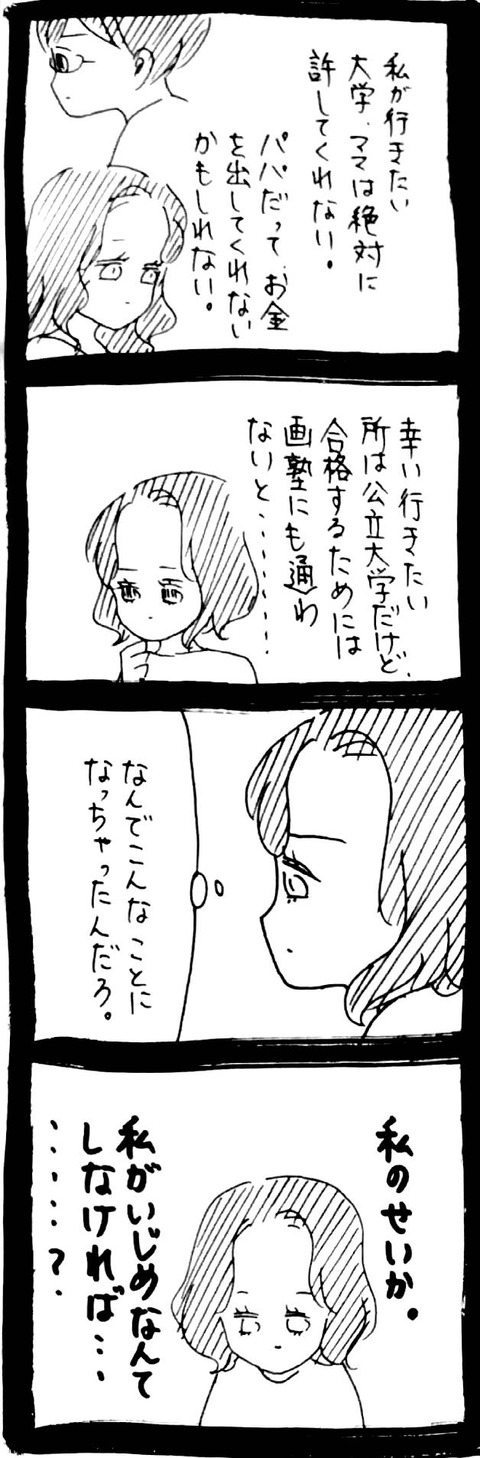 私が行きたい
大学、ママは絶対に
許してくれない。
パパだって、お金
を出してくれない
かもしれない。
幸い行きたい
所は公立大学だけど、
合格するためには
画塾にも通わ
ないと・・・・・・・・
なんでこんなことに
なっちゃったんだろ。
私のせいか。
私がいじめなんて
しなければ・・・
・・・・・・?.